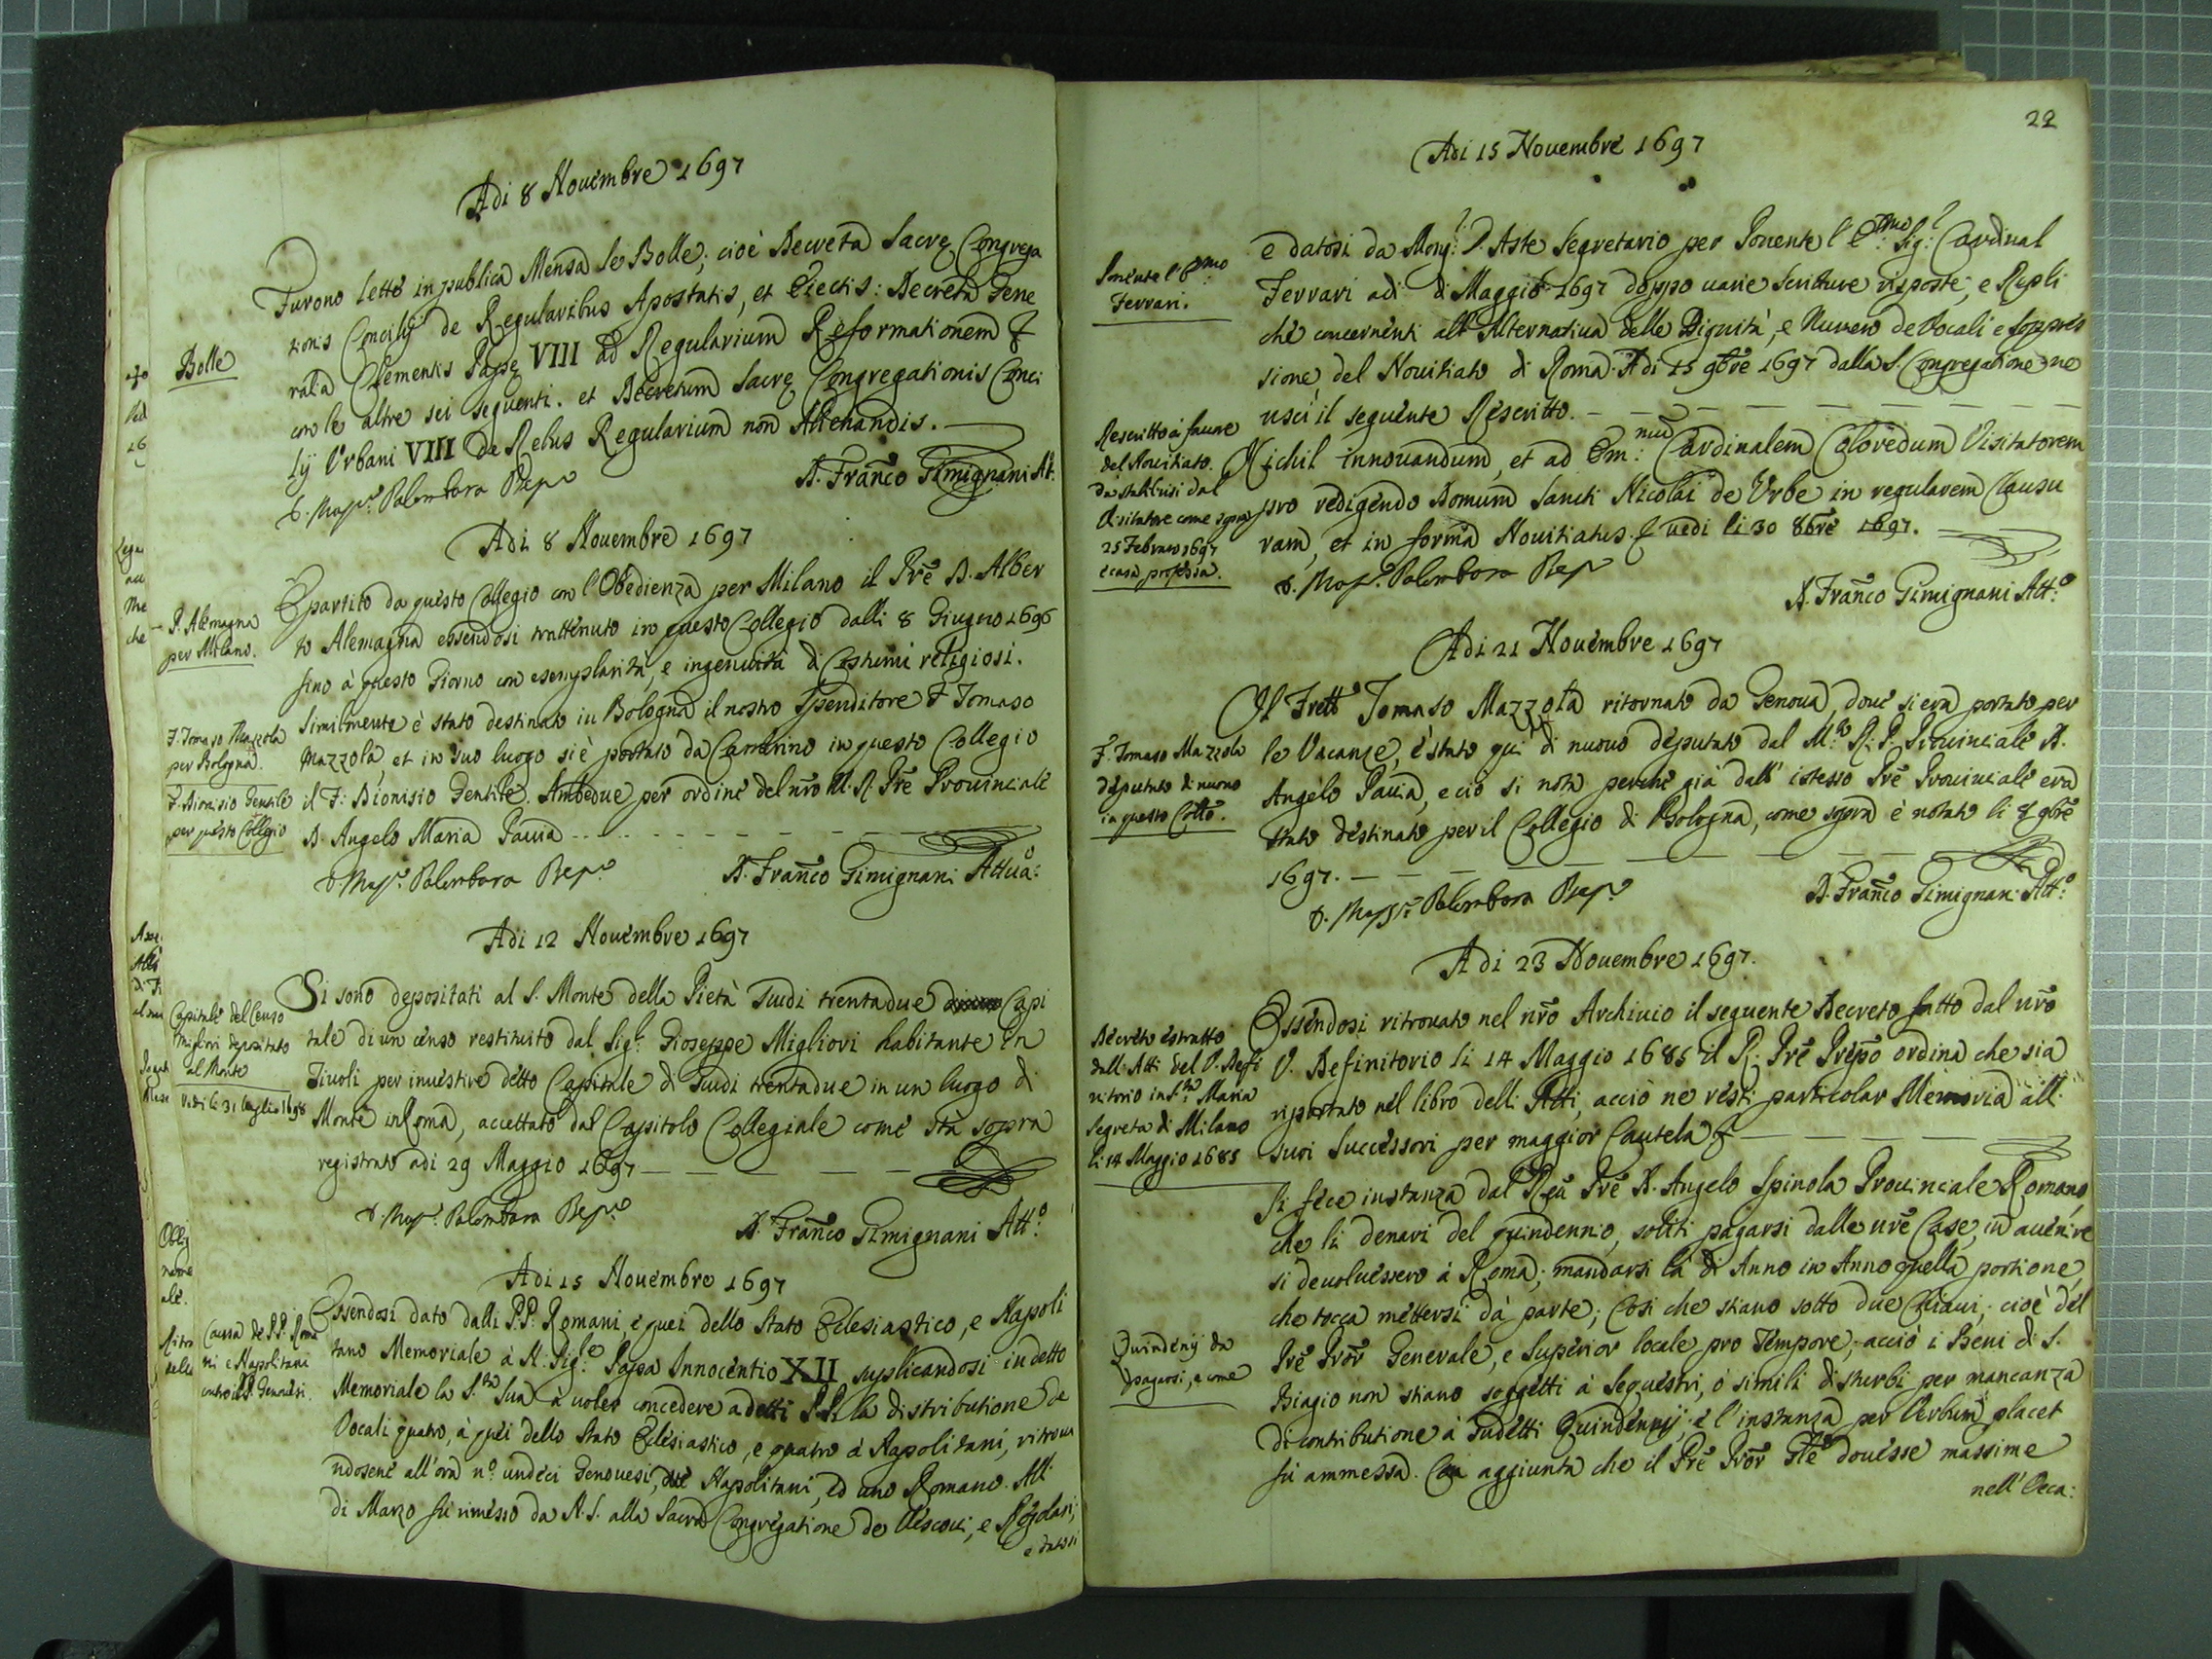 Adi 8 Nouembre 1697
Bolle
Furono lette in publica Mensa le Bolle; cioè Decreta Sacrę Congrega
tionis Concilij de Regularibus Apostatis, et Eiectis: Decreta Gene
ralia Clementis Papę VIII ad Regularium Reformationem &
con le altre sei seguenti. et Decretum Sacrę Congregationis Conci
lij Vrbani VIII de Rebus Regularium non Alienandis.
D. Mass.o Palombara Prep.o
D. Franco Gimignani Att.
Adi 8 Nouembre 1697
P. Alemagna
per Milano.
È partito da questo Collegio con l'Obedienza per Milano il Prē D. Alber
to Alemagna essendosi trattenuto in questo Collegio dalli 8 Giugno 1696
sino à questo Giorno con esemplarità, e ingenuità di Costumi religiosi.
F. Tomaso Mazzola
per Bologna.
F. Dionisio Gentile
per questo Collegio
Similmente è stato destinato in Bologna il nostro Spenditore F Tomaso
Mazzola, et in suo luogo si è portato da Camerino in questo Collegio
il F: Dionisio Gentile. Ambedue per ordine del nr̄o M. R. Prē Prouinciale
D. Angelo Maria Pauia
D. Mass.o Palombara Prep.o
D. Franco Gimignani Attuā:
Adi 12 Nouembre 1697
Capitale del Censo
Migliori depositato
al Monte
Vedi li 31 luglio 1698
Si sono depositati al S. Monte della Pietà Scudi trentadue Capi
tale di un censo restituito dal Sig.r Gioseppe Migliori habitante in
Tiuoli per inuestire detto Capitale di Scudi trentadue in un luogo di
Monte in Roma, accettato dal Capitolo Collegiale come stà sopra
registrato adi 29 Maggio 1697
D. Mass.o Palombara Prep.o
D. Franco Gimignani Att.o
Adi 15 Nouembre 1697
Causa de PP. Roma
ni e Napolitani
contro i PP. Genouesi.
Essendosi dato dalli P.P. Romani, e quei dello Stato Eclesiastico, e Napoli
tano Memoriale à N. Sig.e Papa Innocentio XII supplicandosi in detto
Memoriale la S.tà Sua à uoler concedere a detti P.P. la distributione de
Vocali quatro, à quei dello Stato Eclesiastico, e quatro à Napolitani, ritroua
ndosene all'ora n.o undeci Genouesi, due Napolitani, ed uno Romano. Alli
di Marzo fù rimesso da N.S. alla Sacra Congregatione de Vescoui, e Regolari;
e datosi
22
Adi 15 Nouembre 1697
Ponente l'E.mo
Ferrari.
e datosi da Mong.r D'Aste Segretario per Ponente l'E.mo Sig.r Cardinal
Ferrari adi di Maggio 1697 doppo uarie Scritture risposte, e Repli
che concernenti all'Alternatiua delle Dignità, e Numero de Vocali e soppres
sione del Nouitiato di Roma. Adi 15 9bre 1697 dalla S. Congregatione ne
uscì il seguente Rescritto.
Rescritto à fauore
del Nouitiato.
da stabilirsi dal
Visitatore come sopra
25 Febraro 1697
e casa professa.
Nichil innouandum, et ad Em.num Cardinalem Coloredum Visitatorem
pro redigendo Domum Sancti Nicolai de Vrbe in regularem Clausu
ram, et in forma Nouitiatus. & uedi li 30 8bre 1697.
D. Mass.o Palombara Prep.o
D. Franco Gimignani Att.o
Adi 21 Nouembre 1697
F. Tomaso Mazzola
deputato di nuouo
in questo Coll.o
Il Frett.o Tomaso Mazzola ritornato da Genoua, doue si era portato per
le Vacanze, è stato qui di nuouo deputato dal M.to R. P. Prouinciale D.
Angelo Pauia, e ciò si nota perche già dall'istesso Prē Prouinciale era
stato destinato per il Collegio di Bologna, come sopra è notato li 8 9bre
1697.
D. Mass.o Palombara Prep.o
D. Franco Gimignani Att.o
Adi 23 Nouembre 1697.
Decreto estratto
dalli Atti del V. Defi
nitorio in S.ta Maria
Segreta di Milano
li 14 Maggio 1685
Essendosi ritrouato nel nr̄o Archiuio il seguente Decreto fatto dal nr̄o
V. Definitorio li 14 Maggio 1685 il R. Prē Prep̄o ordina che sia
riportato nel libro delli Atti, acciò ne resti particolar Memoria alli
suoi Successori per maggior Cautela &
Si fece instanza dal Reū Prē D. Angelo Spinola Prouinciale Romano,
che li denari del quindennio, soliti pagarsi dalle nr̄e Case, in auenire
si deuoluessero à Roma; mandarsi là di Anno in Anno quella portione,
che tocca mettersi da parte; Così che stiano sotto due Chiaui; cioè del
Quindenij da
pagarsi, e come
Prē Pror Generale, e Superior locale pro tempore; acciò i Beni di S.
Biagio non stiano soggetti à Sequestri, ò simili disturbi per mancanza
di contributione à sudetti Quindennij; e l'instanza per Verbum placet
fù ammessa. Con aggiunta che il Prē Pror Gle douesse massime
nell'Occa: